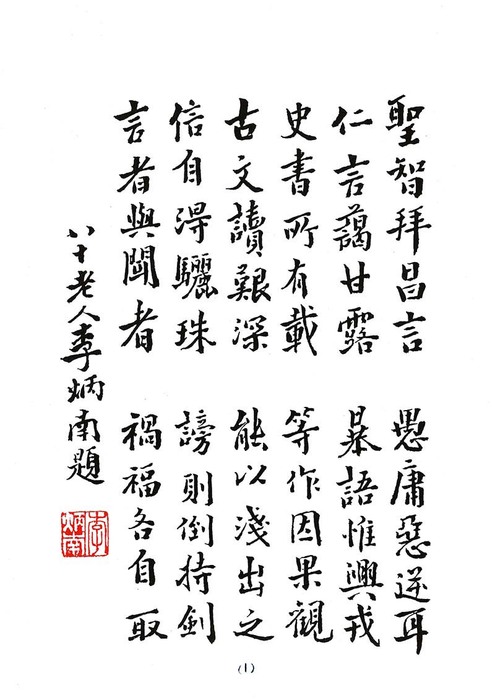 聖智拜昌言 愚庸惡逆耳
仁言藹甘露 暴語惟興戎
史書所有載 等作因果觀
古文讀艱深 能以淺出之
信自淂驪珠 謗則倒持劍
言者與聞者 禍福各自取
八十老人李炳南題
李炳南
(1)